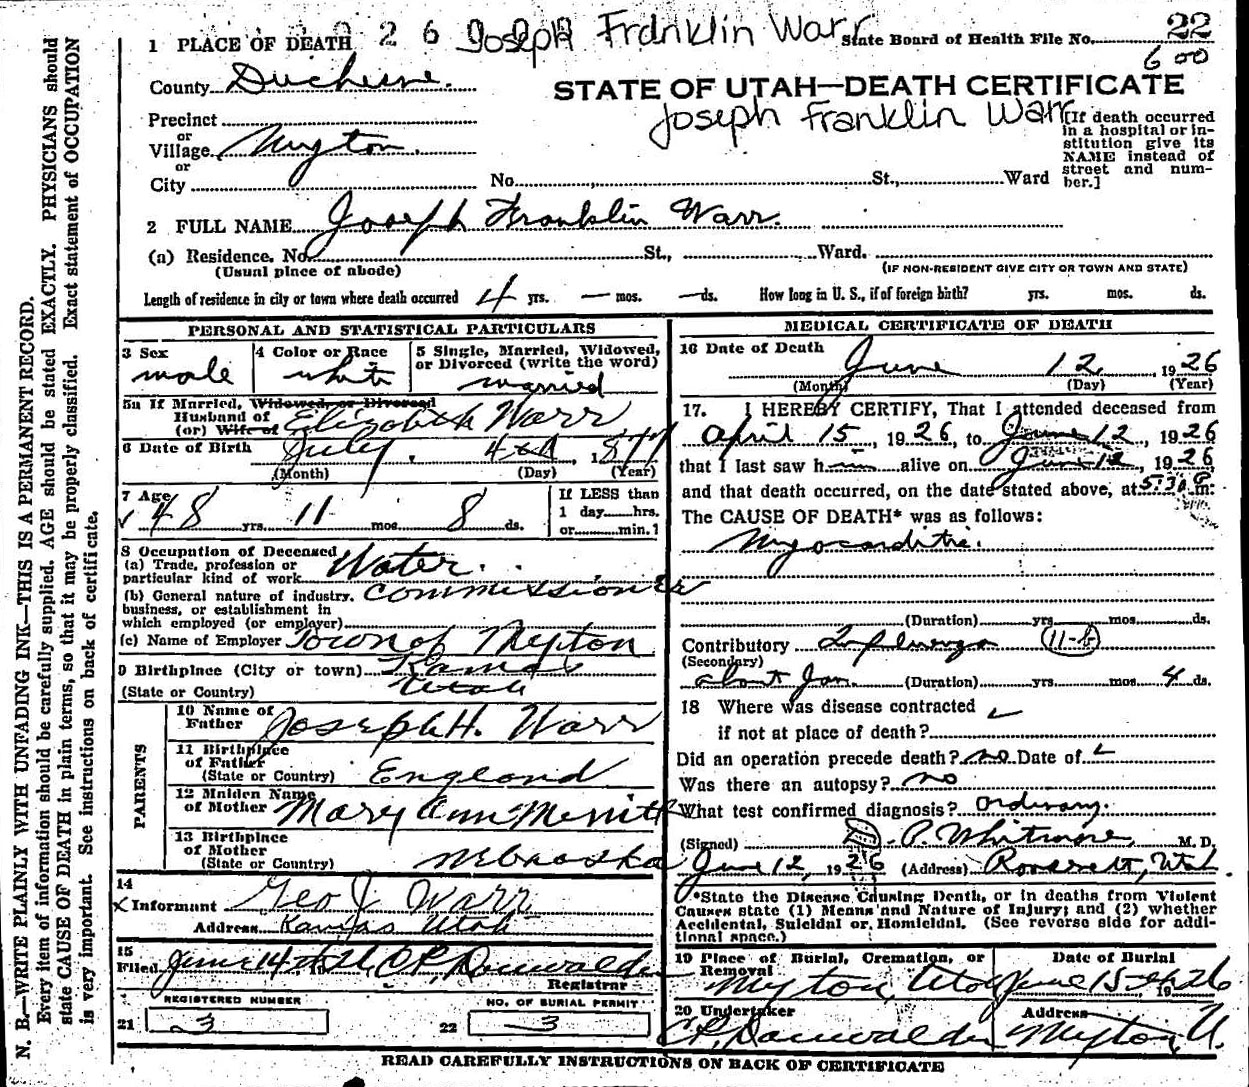 1 PLACE OF DEATH 26 Joseph Franklin Warr State Board of Health File No. 22
600
County Duchesne.
STATE OF UTAH—DEATH CERTIFICATE
Joseph Franklin Warr
Precinct
or
Village Myton.
or
City No. St., Ward
[If death occurred
in a hospital or in-
stitution give its
NAME instead of
street and num-
ber.]
2 FULL NAME Joseph Franklin Warr.
(a) Residence. No. St., Ward.
(Usual place of abode) (IF NON-RESIDENT GIVE CITY OR TOWN AND STATE)
Length of residence in city or town where death occurred 4 yrs. — mos. — ds. How long in U. S., if of foreign birth? yrs. mos. ds.
PERSONAL AND STATISTICAL PARTICULARS
3 Sex 4 Color or Race 5 Single, Married, Widowed,
or Divorced (write the word)
male white married
5a If Married, Widowed, or Divorced
Husband of
(or) Wife of Elizabeth Warr
6 Date of Birth July 4th, 1877
(Month) (Day) (Year)
7 Age If LESS than
48 yrs. 11 mos. 8 ds. 1 day hrs.
or min.
8 Occupation of Deceased
(a) Trade, profession or
particular kind of work Water
(b) General nature of industry, Commissioner
business, or establishment in
which employed (or employer)
(c) Name of Employer Town of Myton
9 Birthplace (City or town) Kamas
(State or Country) Utah
PARENTS
10 Name of
Father Joseph H. Warr
11 Birthplace
of Father
(State or Country) England
12 Maiden Name
of Mother Mary Ann Merritt
13 Birthplace
of Mother
(State or Country) Nebraska
14
x Informant Geo J. Warr
Address Kamas Utah
15
Filed June 14th
Registrar
REGISTERED NUMBER NO. OF BURIAL PERMIT
21 3 22 3
MEDICAL CERTIFICATE OF DEATH
16 Date of Death June 12 1926
(Month) (Day) (Year)
17. I HEREBY CERTIFY, That I attended deceased from
April 15, 1926, to June 12, 1926
that I last saw him alive on June 12, 1926,
and that death occurred, on the date stated above, at 5:30 P m.
The CAUSE OF DEATH* was as follows:
Myocarditis.
(Duration) yrs. mos. ds.
Contributory Influenza
(Secondary)
about Jan. (Duration) yrs. mos. 4 ds.
18 Where was disease contracted
if not at place of death?
Did an operation precede death? no Date of
Was there an autopsy? no
What test confirmed diagnosis? Ordinary.
(Signed) P. Whitmore, M. D.
June 12, 1926 (Address) Roosevelt, Utah.
*State the Disease Causing Death, or in deaths from Violent
Causes state (1) Means and Nature of Injury; and (2) whether
Accidental, Suicidal or Homicidal. (See reverse side for addi-
tional space.)
19 Place of Burial, Cremation, or
Removal Date of Burial
Myton, Utah June 15th 1926
20 Undertaker Address
Myton, U.
READ CAREFULLY INSTRUCTIONS ON BACK OF CERTIFICATE
N. B.—WRITE PLAINLY WITH UNFADING INK—THIS IS A PERMANENT RECORD.
Every item of information should be carefully supplied. AGE should be stated EXACTLY. PHYSICIANS should
state CAUSE OF DEATH in plain terms, so that it may be properly classified. Exact statement of OCCUPATION
is very important. See instructions on back of certificate.